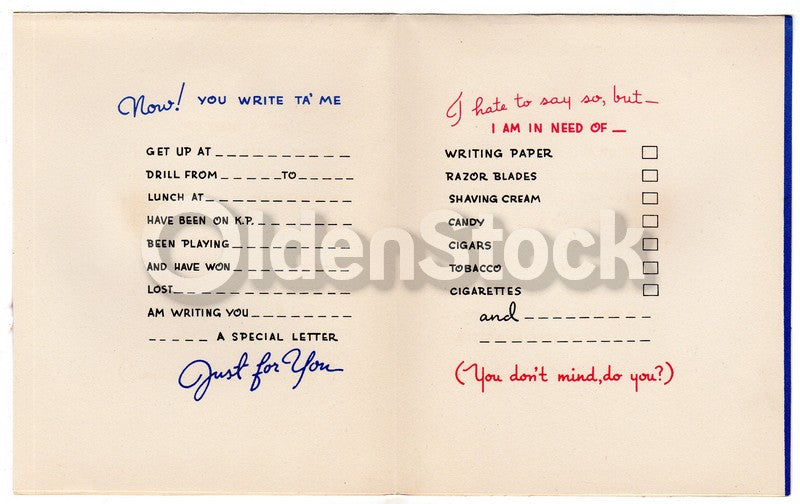 Now! YOU WRITE TA' ME
GET UP AT _ _ _ _ _ _ _ _ _ _ _
DRILL FROM _ _ _ _ _ TO _ _ _ _ _
LUNCH AT _ _ _ _ _ _ _ _ _ _ _ _
HAVE BEEN ON K.P. _ _ _ _ _ _ _ _
BEEN PLAYING _ _ _ _ _ _ _ _ _ _
AND HAVE WON _ _ _ _ _ _ _ _ _ _
LOST _ _ _ _ _ _ _ _ _ _ _ _ _ _
AM WRITING YOU _ _ _ _ _ _ _ _
_ _ _ _ _ A SPECIAL LETTER
Just for You
I hate to say so, but—
I AM IN NEED OF —
WRITING PAPER
RAZOR BLADES
SHAVING CREAM
CANDY
CIGARS
TOBACCO
CIGARETTES
and _ _ _ _ _ _ _ _ _ _
_ _ _ _ _ _ _ _ _ _ _ _ _
(You don't mind, do you?)
OldenStock